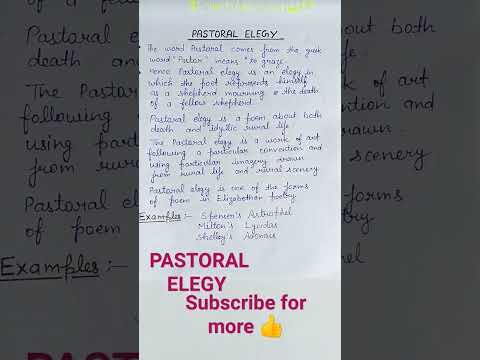 PASTORAL ELEGY
The word Pastoral comes from the greek
word "Pastor" means "to graze.
Hence Pastoral elegy is an elegy in
which the poet represents himself
as a shepherd mourning the death
of a fellow shepherd.
Pastoral elegy is a poem about both
death and idyllic rural life
The Pastoral elegy is a work of art
following a particular convention and
using particular imagery drawn
from rural life and rural scenery
Pastoral elegy is one of the forms
of poem in Elizabethan poetry
Examples:- Spenser's Astrophel
Milton's Lycidas
Shelley's Adonais
PASTORAL
ELEGY
Subscribe for
more 👍
Pastoral el
death and
The Pas
following
using part
from rura
Pastoral e
of poem
Examples:-
about both
of art
and
drawn
scenery
forms
PASTORAL